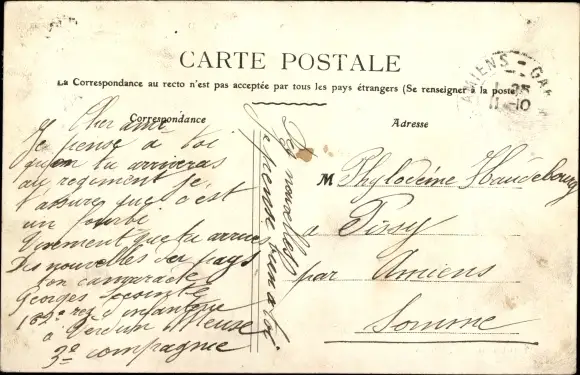 CARTE POSTALE
La Correspondance au recto n'est pas acceptée par tous les pays étrangers (Se renseigner à la poste)
AMIENS - GA
1-25
11-10
Correspondance
Adresse
Cher ami
Je pense à toi
quan tu arriveras
au regiment je
t'assure que c'est
un fourbi
que tu arrive
Des nouvelles du pays
ton camarade
Georges
à Verdun Meuse
3e compagnie
Je pense bien a toi
Des nouvelles
M Phylodème Haudebourg
a Pissy
par Amiens
Somme